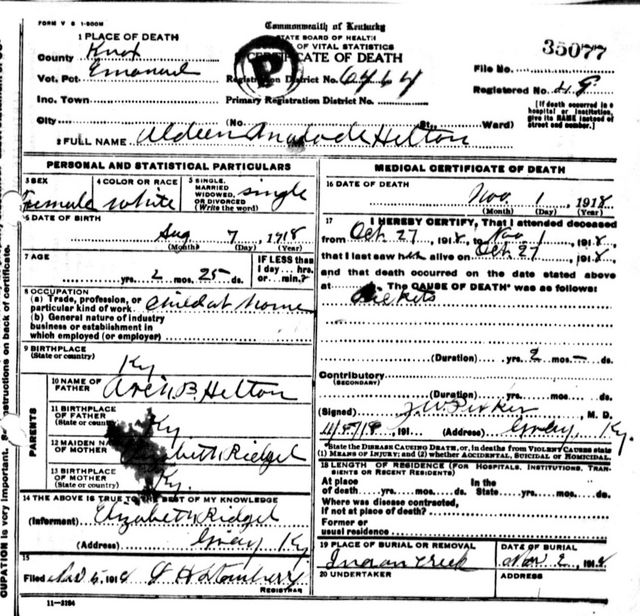 FORM V S 1-500M
Commonwealth of Kentucky
STATE BOARD OF HEALTH
OF VITAL STATISTICS
CERTIFICATE OF DEATH
35077
1 PLACE OF DEATH
County Knox
Vot. Pct. Emanuel
Inc. Town
City
Registration District No. 6464
Primary Registration District No.
(No. St., Ward)
File No.
Registered No. 48
[If death occurred in a hospital or institution, give its NAME instead of street and number.]
2 FULL NAME Aldeen Helton
PERSONAL AND STATISTICAL PARTICULARS
3 SEX
Female
4 COLOR OR RACE
White
5 SINGLE, MARRIED WIDOWED, OR DIVORCED (Write the word)
Single
6 DATE OF BIRTH
Aug 7, 1918
(Month) (Day) (Year)
7 AGE
yrs. 2 mos. 25 ds.
IF LESS than 1 day... hrs. or... min.?
8 OCCUPATION
(a) Trade, profession, or particular kind of work Child at home
(b) General nature of industry business or establishment in which employed (or employer)
9 BIRTHPLACE
(State or country) Ky
PARENTS
10 NAME OF FATHER B. Helton
11 BIRTHPLACE OF FATHER
(State or country) Ky
12 MAIDEN NA OF MOTHER Ridgel
13 BIRTHPLACE OF MOTHER
(State or country) Ky.
14 THE ABOVE IS TRUE TO THE BEST OF MY KNOWLEDGE
(Informant) Elizabeth Ridgel
(Address) Gray Ky
15
Filed 5, 191
REGISTRAR
11-3184
MEDICAL CERTIFICATE OF DEATH
16 DATE OF DEATH
Nov 1, 1918
(Month) (Day) (Year)
17 I HEREBY CERTIFY, That I attended deceased
from Oct 27, 1918, to Nov 1, 1918,
that I last saw h alive on Oct 27, 1918,
and that death occurred on the date stated above
at M. The CAUSE OF DEATH* was as follows:
Rickets
(Duration) yrs. 2 mos. ds.
Contributory
(SECONDARY)
(Duration) yrs. mos. ds.
(Signed) J.W. Parker, M. D.
191 (Address) Gray, Ky.
*State the DISEASE CAUSING DEATH, or, in deaths from VIOLENT CAUSES state (1) MEANS OF INJURY; and (2) whether ACCIDENTAL, SUICIDAL or HOMICIDAL.
18 LENGTH OF RESIDENCE (FOR HOSPITALS, INSTITUTIONS, TRANSIENTS OR RECENT RESIDENTS)
At place of death yrs. mos. ds. In the State yrs. mos. ds.
Where was disease contracted, if not at place of death?
Former or usual residence
19 PLACE OF BURIAL OR REMOVAL
Indian Creek
DATE OF BURIAL
Nov 2, 1918
20 UNDERTAKER
ADDRESS
CUPATION is very important. See instructions on back of certificate.